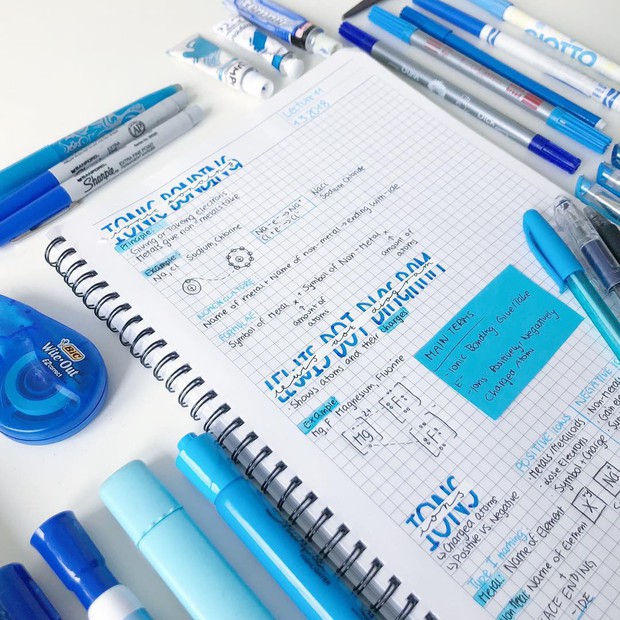 Lecture 11
1.3.2018
IONIC BONDING
ionic bonding
Principle:
Giving or taking electrons
Metals give non metal take
Example:
Na, Cl Sodium, Chlorine
Na - e⁻ → Na⁺
Cl + e⁻ → Cl⁻
NaCl
Sodium Chloride
NOMENCLATURE
Name of metal + Name of non-metal → ending with -ide
FORMULAE
Symbol of Metal x + Symbol of Non-Metal x
amount of atoms
amount of atoms
LEWIS DOT DIAGRAM
lewis dot diagram
· Shows atoms and their charges
Example
Mg, F Magnesium, Fluorine
Mg 2+
F
F
MAIN TERMS
Ionic Bonding Give/Take
E⁻
- Ions Positivity/Negativity
Charged Atoms
IONS
ions
↳ Charged atoms
↳ Positive vs. Negative
POSITIVE IONS
· Metals/Metalloids
· Lose Electrons
· Symbol + Charge
X⁺ʸ
Na⁺
NEGATIVE
· Non-Metal
· Gain
Symbol
Type I naming
Metal: Name of Element
Non Metal: Name of Element
ENDING
- IDE
Sharpie
EXTRA FINE POINT
AP
BIC
Wite-Out
EZcorrect
GIOTTO